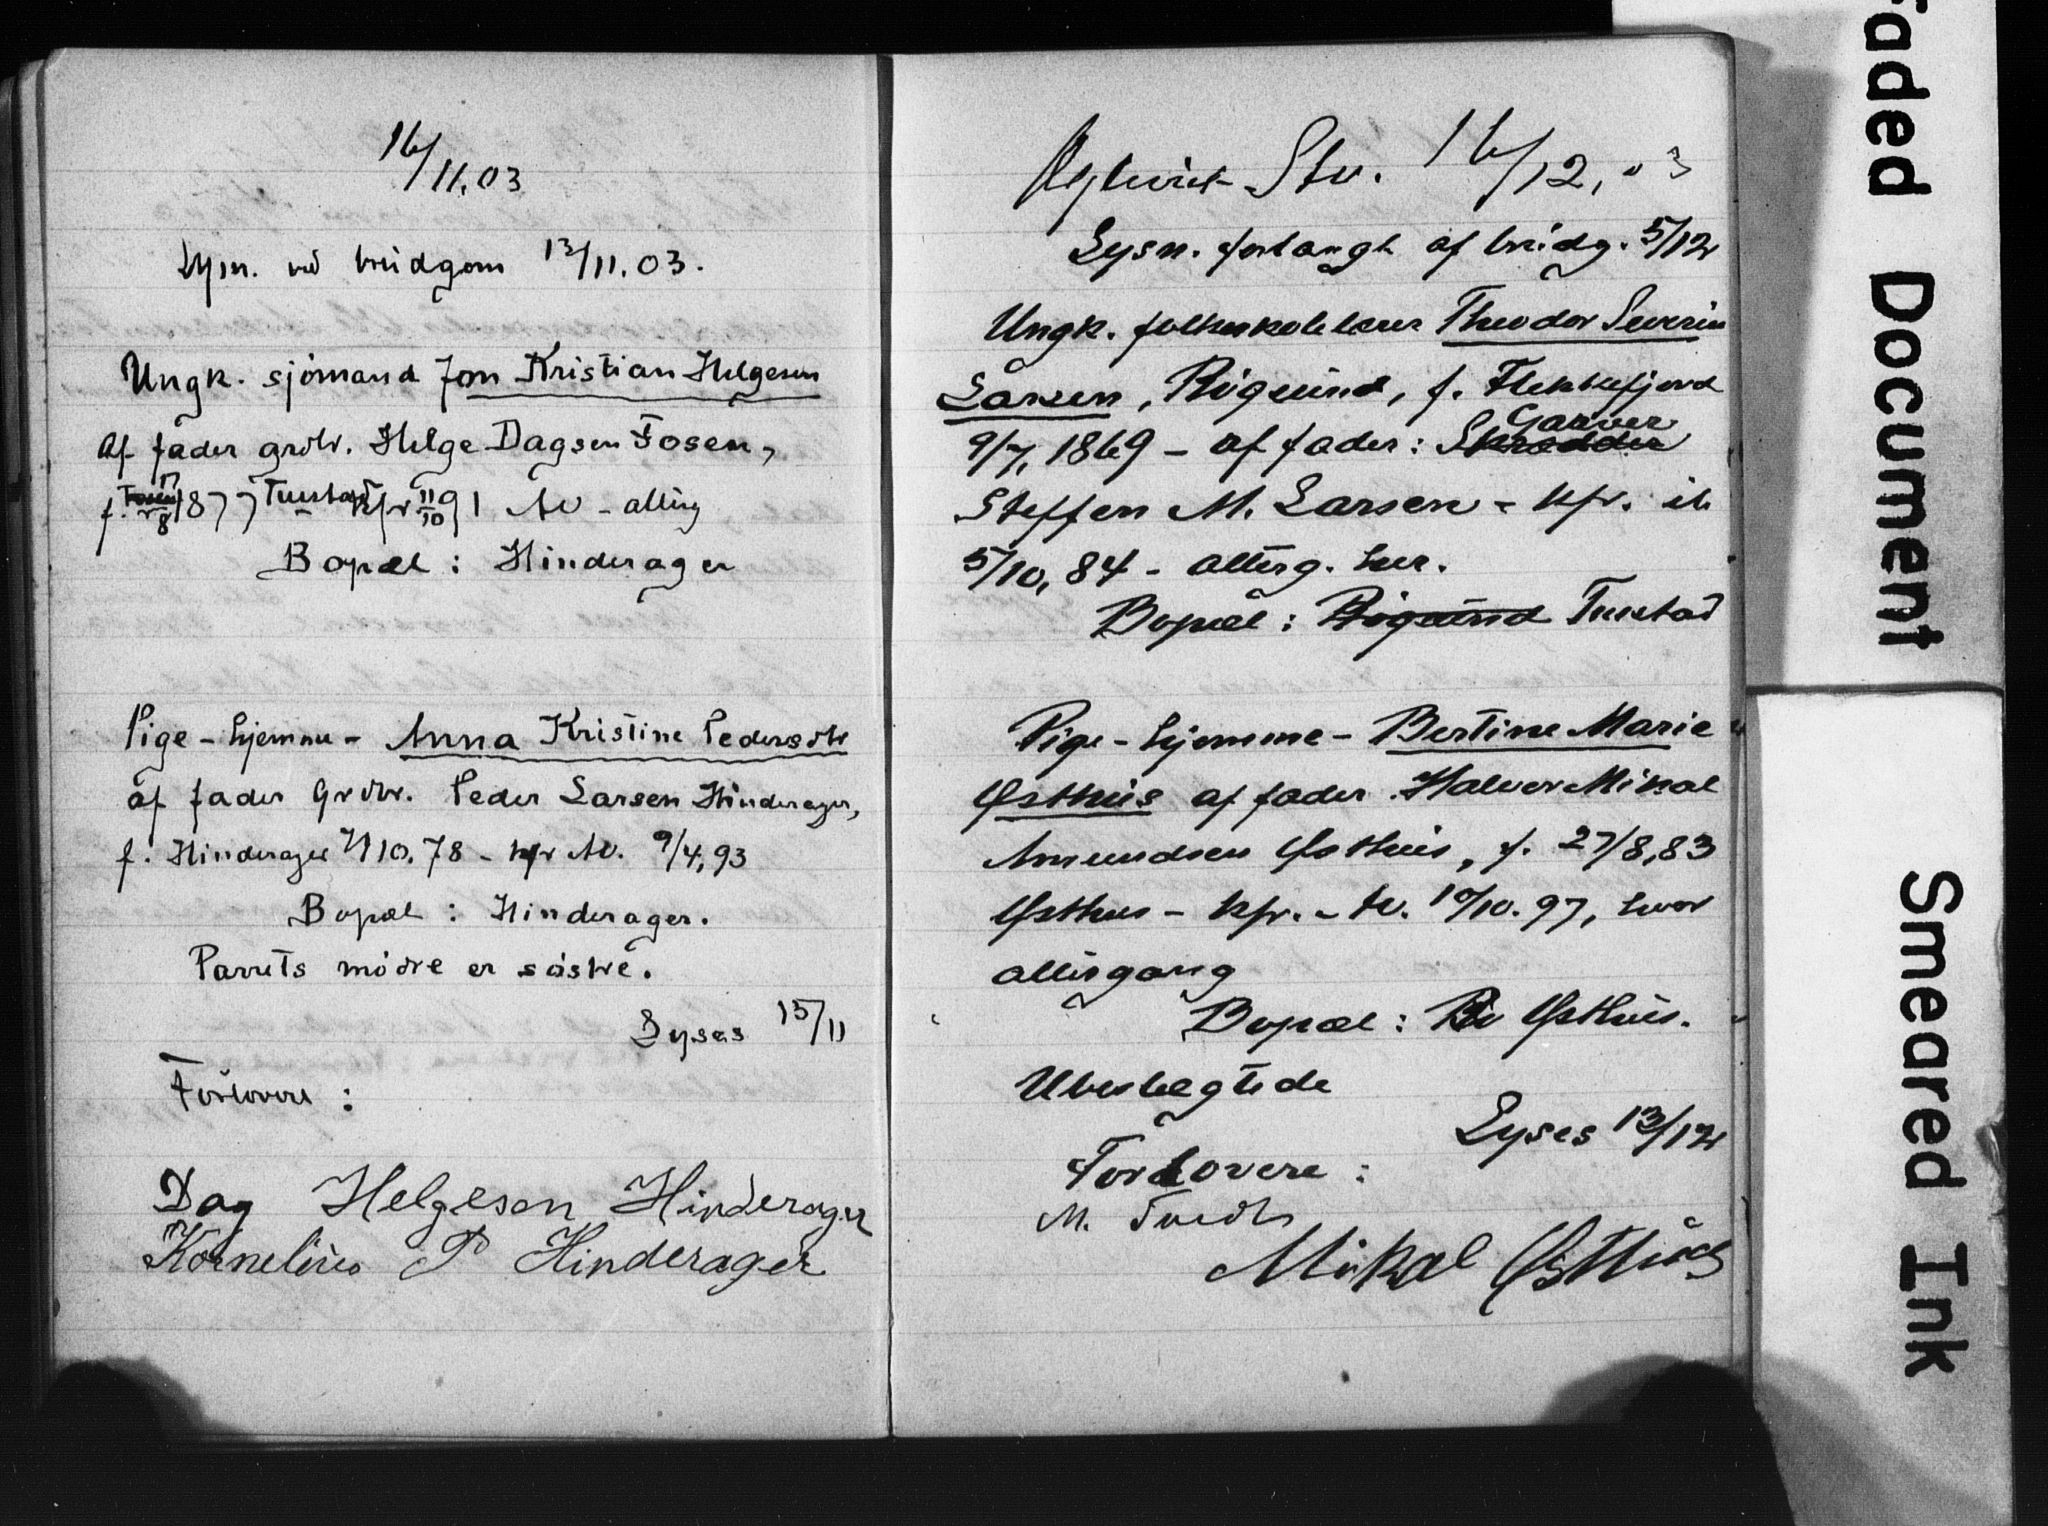 16/11.03
Lysn. ved brudgom 13/11.03.
Ungk. sjømand Jon Kristian Helgesen
Af fader grdbr. Helge Dagsen Fosen,
f. 17/8 1877 Tuastad kfr 11/10 91 Av - altrg
Bopæl : Hinderager
Pige - hjemme - Anna Kristine Pedersdtr
af fader Grdbr. Peder Larsen Hinderager,
f. Hinderager 7/10.78 - kfr Av. 9/4,93
Bopæl : Hinderager.
Parrets mødre er søstre.
Lyses 15/11
Forlovere :
Dag Helgesen Hinderager
Kornelius P Hinderager
Stv. 16/12,03
Lysn. forlangt af brudg. 5/12
Ungk. folkeskolelærer Theodor Severin
Larsen, Røgsund, f. Flekkefjord
9/7, 1869 - af fader : Skrædder Garver
Steffen M. Larsen - kfr. ib
5/10, 84 - altrg. her.
Bopæl : Røgsund Tuastad
Pige - hjemme - Bertine Marie
Østhus af fader Halvor Mikal
Amundsen Østhus, f. 27/8,83
Østhus - kfr. - Av. 10/10.97, hvor
altergang
Bopæl : Østhus.
Ubeslegtede
Lyses 13/12
Forlovere :
M. Tvedt
Mikal Østhus
Faded Document
Smeared Ink